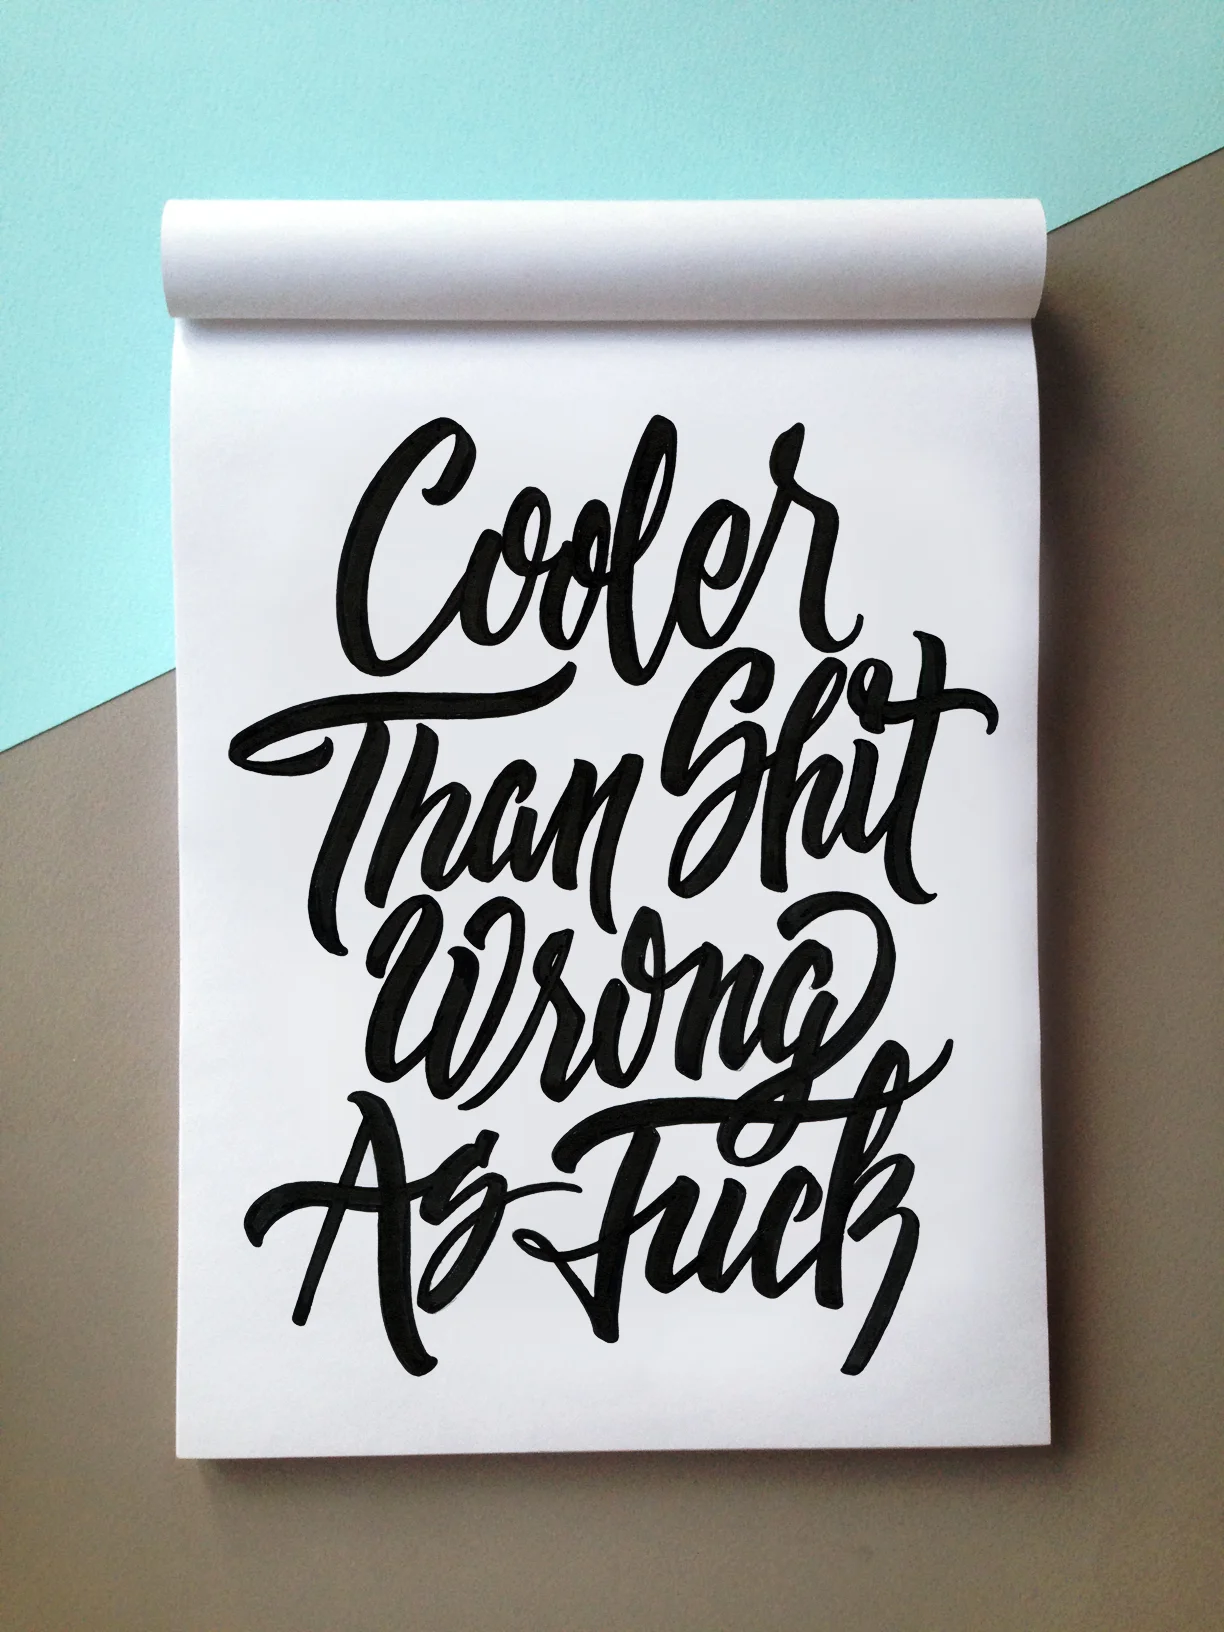 Cooler
Than Shit
Wrong
As Fuck